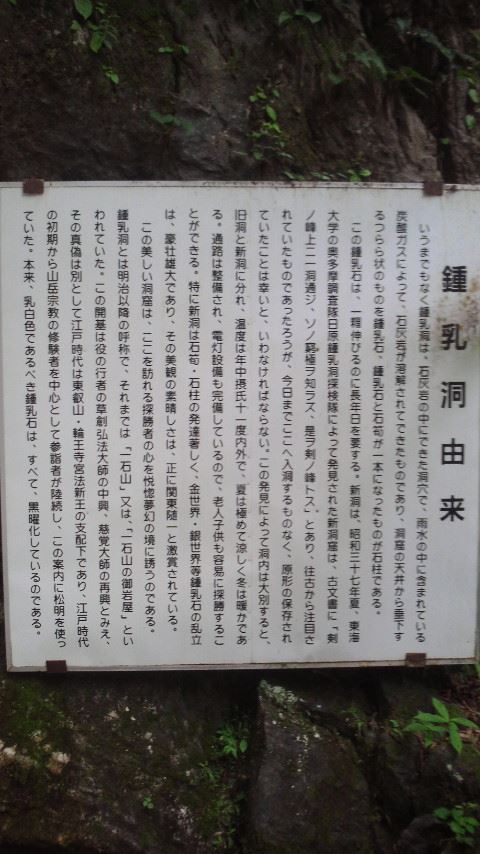 鍾乳洞由来
いうまでもなく鍾乳洞は、石灰岩の中にできた洞穴で、雨水の中に含まれている
炭酸ガスによって、石灰岩が溶解されてできたものであり、洞窟の天井から垂下す
るつらら状のものを鍾乳石、鍾乳石と石筍が一本になったものが石柱である。
この鍾乳石は、一糎伸びるのに長年日を要する。新洞は、昭和三十七年夏、東海
大学の奥多摩調査隊日原鍾乳洞探検隊によって発見された新洞窟は、古文書に「剣
ノ峰上ニ一洞通ジ、ソノ窮極ヲ知ラズ、是ヲ剣ノ峰トス」、とあり、往古から注目さ
れていたものであったろうが、今日までここへ入洞するものなく、原形の保存され
ていたことは幸いと、いわなければならない。この発見によって洞内は大別すると、
旧洞と新洞に分れ、温度は年中摂氏十一度内外で、夏は極めて涼しく冬は暖かであ
る。通路は整備され、電灯設備も完備しているので、老人子供も容易に探勝するこ
とができる。特に新洞は石筍・石柱の発達著しく、金世界・銀世界等鍾乳石の乱立
は、豪壮雄大であり、その美観の素晴しさは、正に関東随一と激賞されている。
この美しい洞窟は、ここを訪れる探勝者の心を悦惚夢幻の境に誘うのである。
鍾乳洞とは明治以降の呼称で、それまでは「一石山」又は、「一石山の御岩屋」とい
われていた。この開基は役の行者の草創弘法大師の中興、慈覚大師の再興とみえ、
その真偽は別として江戸時代は東叡山・輪王寺宮法新王の支配下であり、江戸時代
の初期から山岳宗教の修験者を中心として参詣者が陸続し、この案内に松明を使っ
ていた。本来、乳白色であるべき鍾乳石は、すべて、黒曜化しているのである。